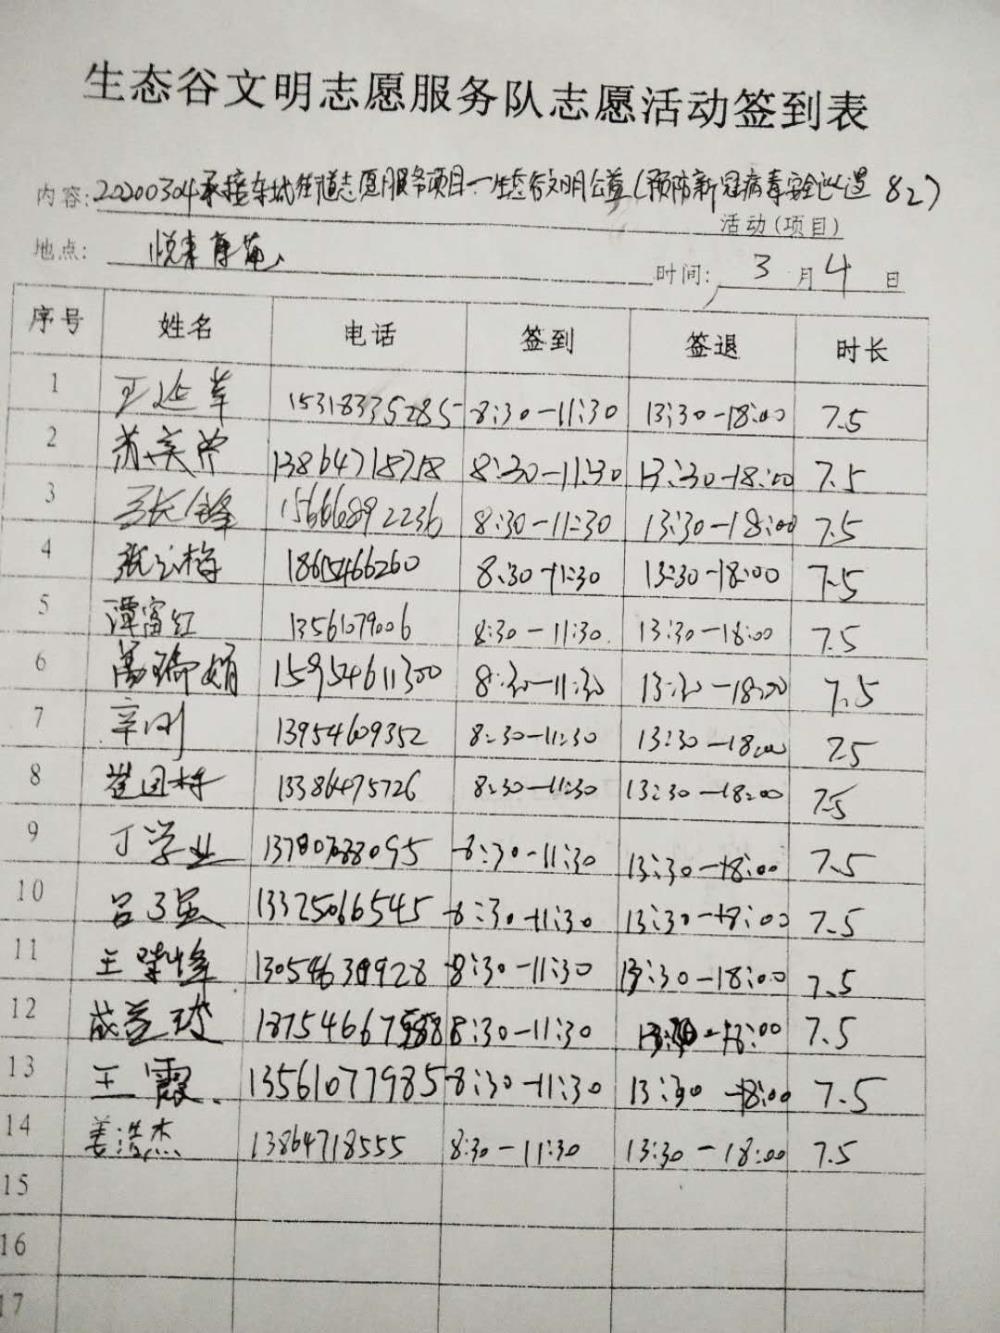 生态谷文明志愿服务队志愿活动签到表
内容:20200304承接东城街道志愿服务项目一生态谷文明公益(预防新冠病毒安全巡逻 82)
活动(项目)
地点: 悦来
时间: 3 月 4 日
序号 姓名 电话 签到 签退 时长
1 王延 15318335285 8:30-11:30 13:30-18:00 7.5
2 苏英 13864718718 8:30-11:30 13:30-18:00 7.5
3 15666892236 8:30-11:30 13:30-18:00 7.5
4 18615466260 8:30-11:30 13:30-18:00 7.5
5 谭富红 13561079006 8:30-11:30 13:30-18:00 7.5
6 娟 15954611300 8:30-11:30 13:30-18:00 7.5
7 辛刚 13954609352 8:30-11:30 13:30-18:00 7.5
8 崔团林 13386475726 8:30-11:30 13:30-18:00 7.5
9 丁学业 8:30-11:30 13:30-18:00 7.5
10 吕子 13325066545 8:30-11:30 13:30-18:00 7.5
11 王 8:30-11:30 13:30-18:00 7.5
12 成 8:30-11:30 13:30-18:00 7.5
13 王霞 13561077985 8:30-11:30 13:30-18:00 7.5
14 姜浩杰 13864718555 8:30-11:30 13:30-18:00 7.5
15
16
17